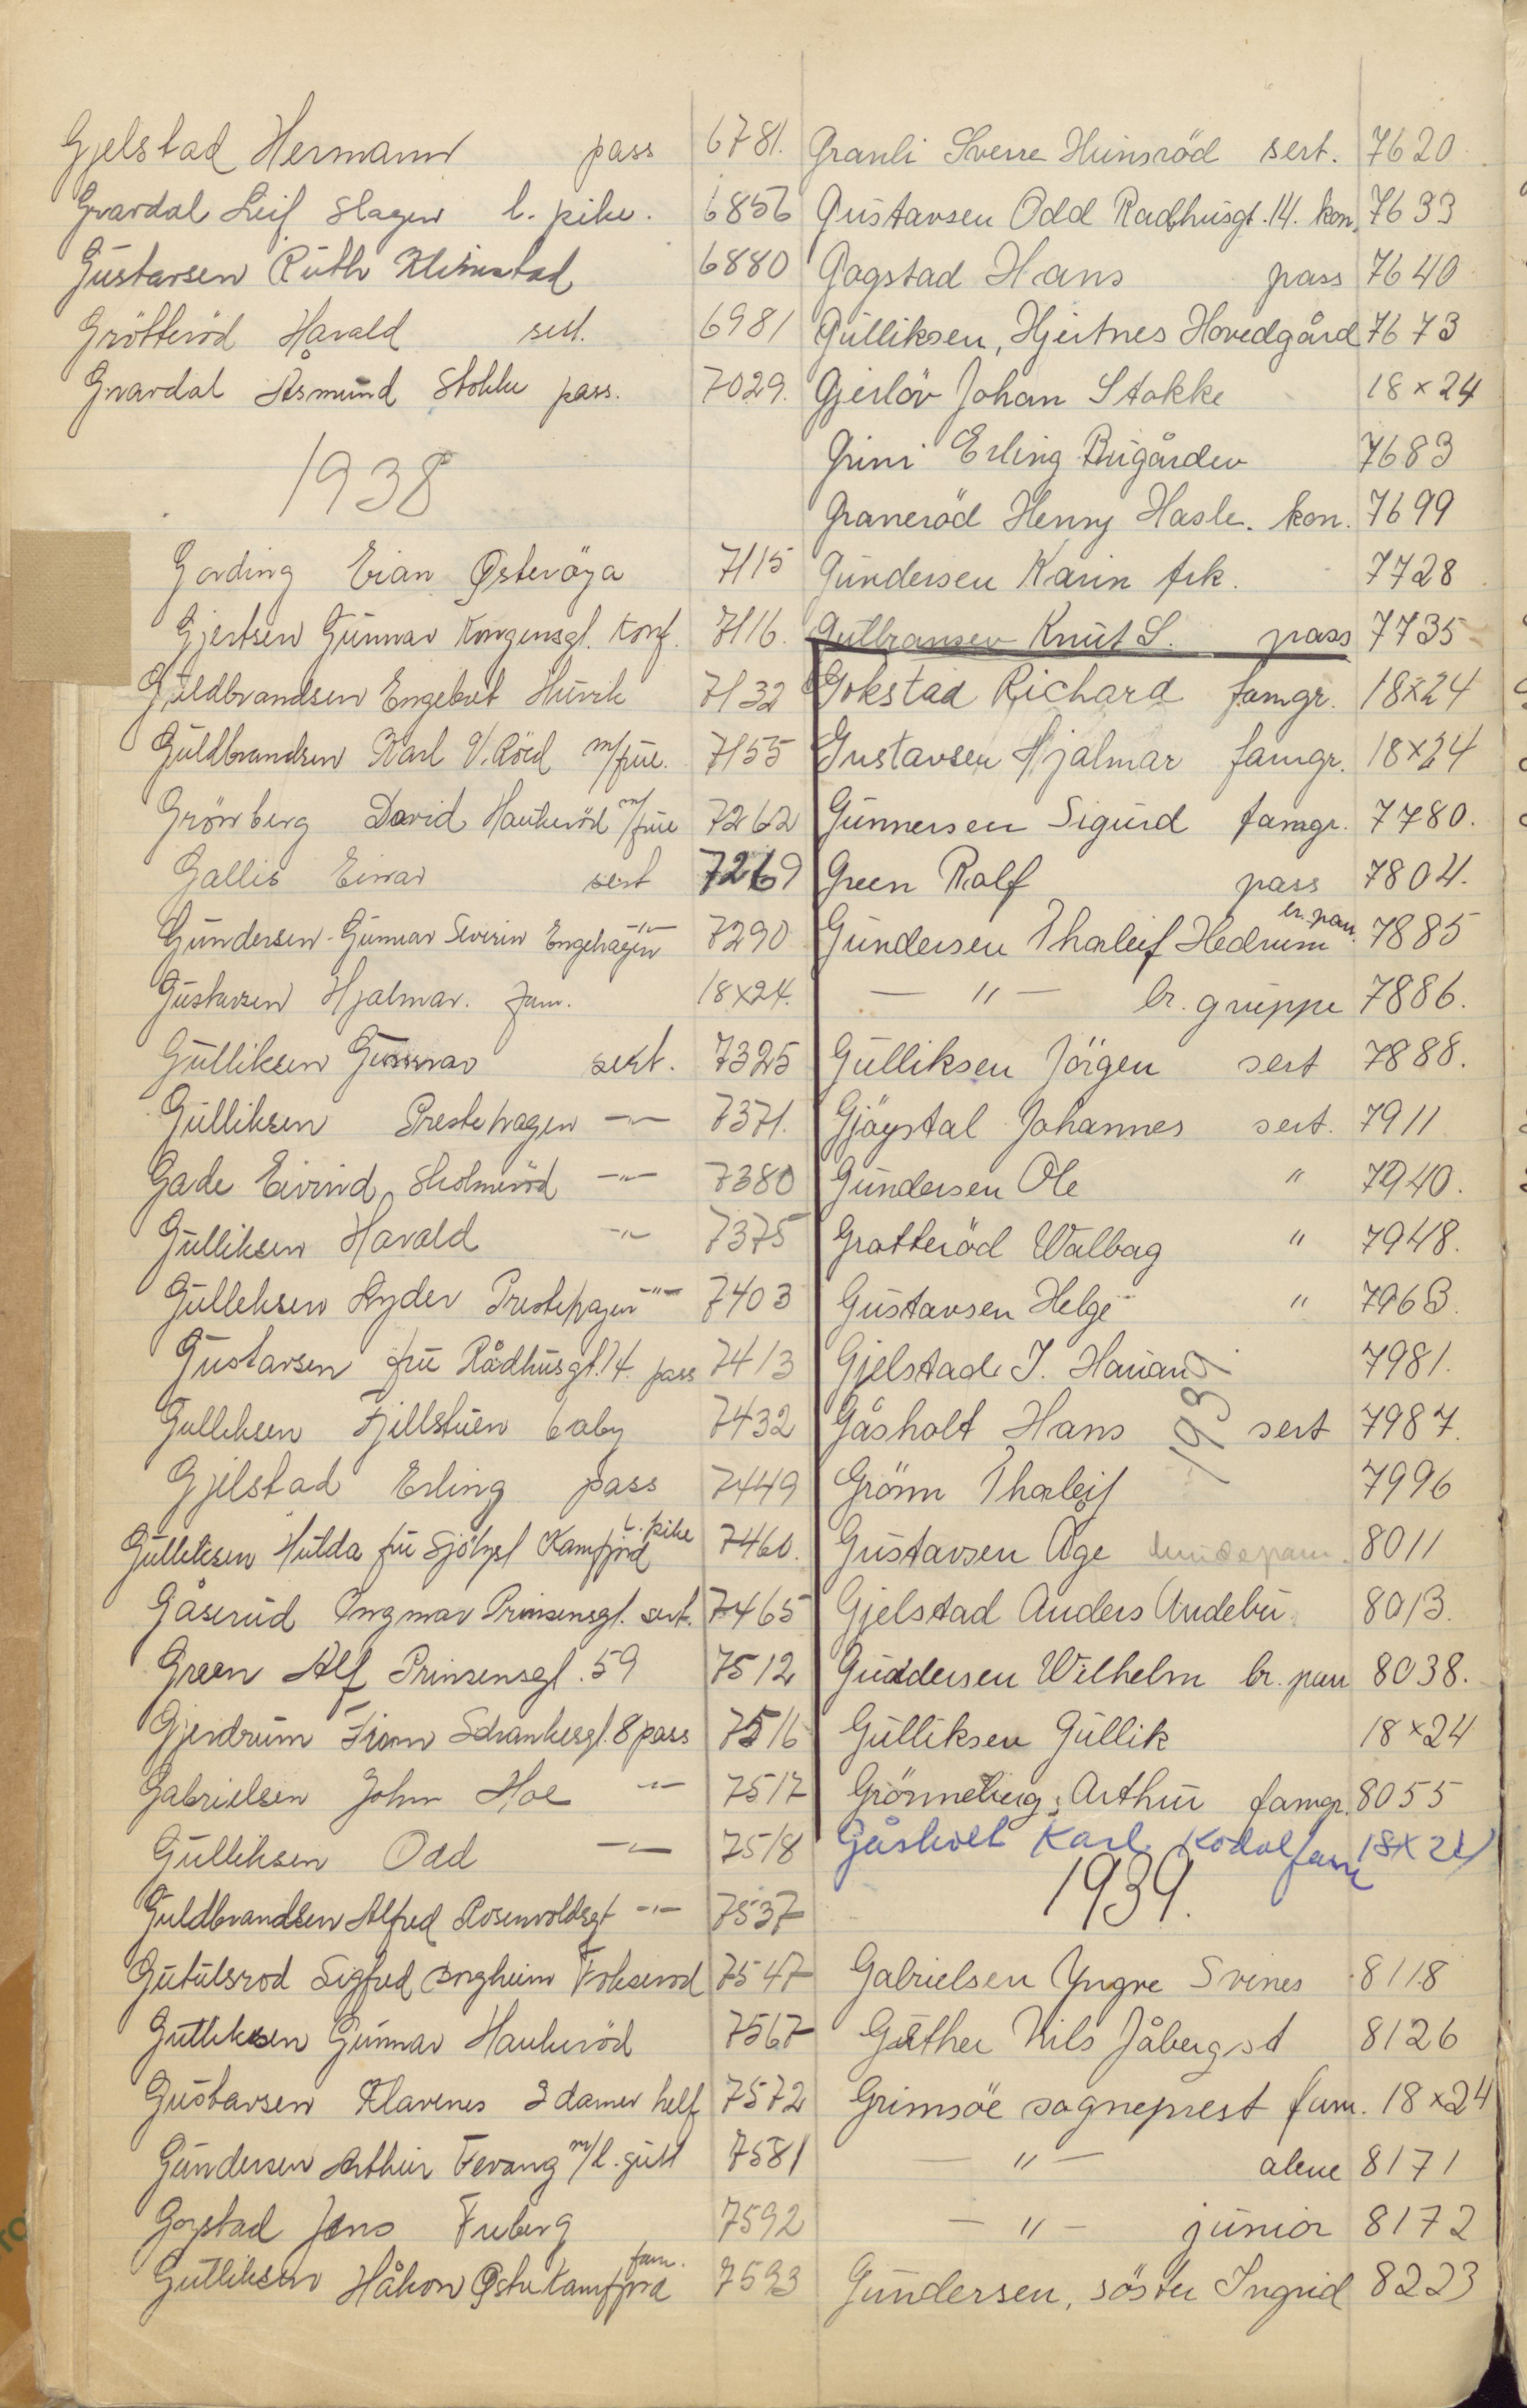 Gjelstad Hermann pass 6781.
Gvardal Leif Slagen l. pike. 6856
Gustavsen Ruth Klinestad 6880
Grötteröd Harald sert. 6981
Gvardal Asmund Stokke pass. 7029.
1938
Gording Eian Østeröya 7115
Gjertsen Gunnar Kongensgt. Konf. 7116.
Guldbrandsen Engebret Huvik 7132
Guldbrandsen Karl V. Röed m/frue. 7155
Grönberg David Haukeröd m/frue 7262
Gallis Einar sert 7269
Gundersen Gunnar Severin Engehagen -"- 7290
Gustavsen Hjalmar. fam. 18x24.
Gulliksen Gunnar sert. 7325
Gulliksen Prestehagen -"- 7371.
Gade Eivind Skolmeröd -"- 7380
Gulliksen Harald -"- 7375
Gulleksen Ryder Prestehagen -"- 7403
Gustavsen frue Rådhusgt. 14. pass 7413
Gulleksen Fjellstuen baby 7432
Gjelstad Erling pass 7449
Gulleksen Hulda frue Sjöbyst Kamfjord l. pike 7460.
Gåserud Ingmar Prinsensgt. sert. 7465
Green Alf Prinsensgt. 59 7512
Gjendrum Finn Schankesgt. 8 pass 7516
Gabrielsen John Hoe -"- 7517
Gulleksen Odd -"- 7518
Guldbrandsen Alfred Rosenvoldsgt -"- 7537
Gutulsrod Sigfred Borgheim Fokserod 7547
Gulleksen Gunnar Haukeröd 7567
Gustavsen Klavenes 2 damer helf 7572
Gundersen Arthur Fevang m/l. gutt 7581
Gogstad Jens Freberg 7592
Gulliksen Håkon Østre Kamfjord fam. 7593
Granli Sverre Hunsröd sert. 7620
Gustavsen Odd Radhusgt. 14. kon. 7633
Gogstad Hans pass 7640
Gulliksen, Hjertnes Hovedgård 7673
Gjerlöv Johan Stokke 18x24
Grini Erling Bugården 7683
Graneröd Henry Hasle. kon. 7699
Gundersen Karin frk. 7728
Gulbransen Knut S. pass 7735
Gokstad Richard famgr. 18x24
Gustavsen Hjalmar famgr. 18x24
Gunnersen Sigurd famgr. 7780.
Green Rolf pass 7804.
Gundersen Thorleif Hedrum br. par. 7885
- " - br. gruppe 7886.
Gulliksen Jörgen sert 7888.
Gjögstal Johannes sert. 7911
Gundersen Ole " 7940.
Grotteröd Walbag " 7948.
Gustavsen Helge " 7963.
Gjelstad J. Havan 7981.
1939
Gåsholt Hans sert 7987.
Grönn Thorleif 7996
Gustavsen Åge 8011
Gjelstad Anders Andebu. 8013.
Guddersen Wilhelm br. par 8038.
Gulliksen Gullik 18x24
Grönneberg, Arthur famgr. 8055
Gåsholt Karl Kodal fam 18x24
1939.
Gabrielsen Yngve Svines 8118
Gåther Nils Jåbergst 8126
Grimsöe sogneprest fam. 18x24
- " - alene 8171
- " - junior 8172
Gundersen, söster Ingrid 8223